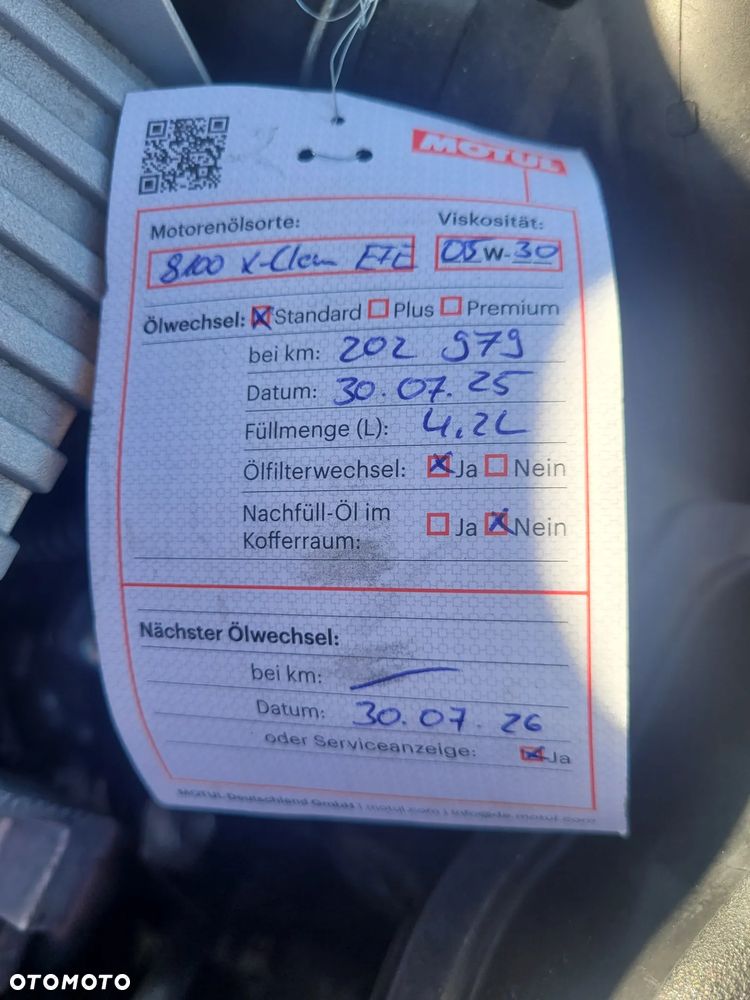 MOTUL
Motorenölsorte: Viskosität:
8100 X-Clean EFE 05W-30
Ölwechsel: Standard Plus Premium
bei km: 202 979
Datum: 30.07.25
Füllmenge (L): 4,2L
Ölfilterwechsel: Ja Nein
Nachfüll-Öl im Ja Nein
Kofferraum:
Nächster Ölwechsel:
bei km: —
Datum: 30.07.26
oder Serviceanzeige: Ja
MOTUL Deutschland GmbH | motul.com | info@de.motul.com
OTOMOTO